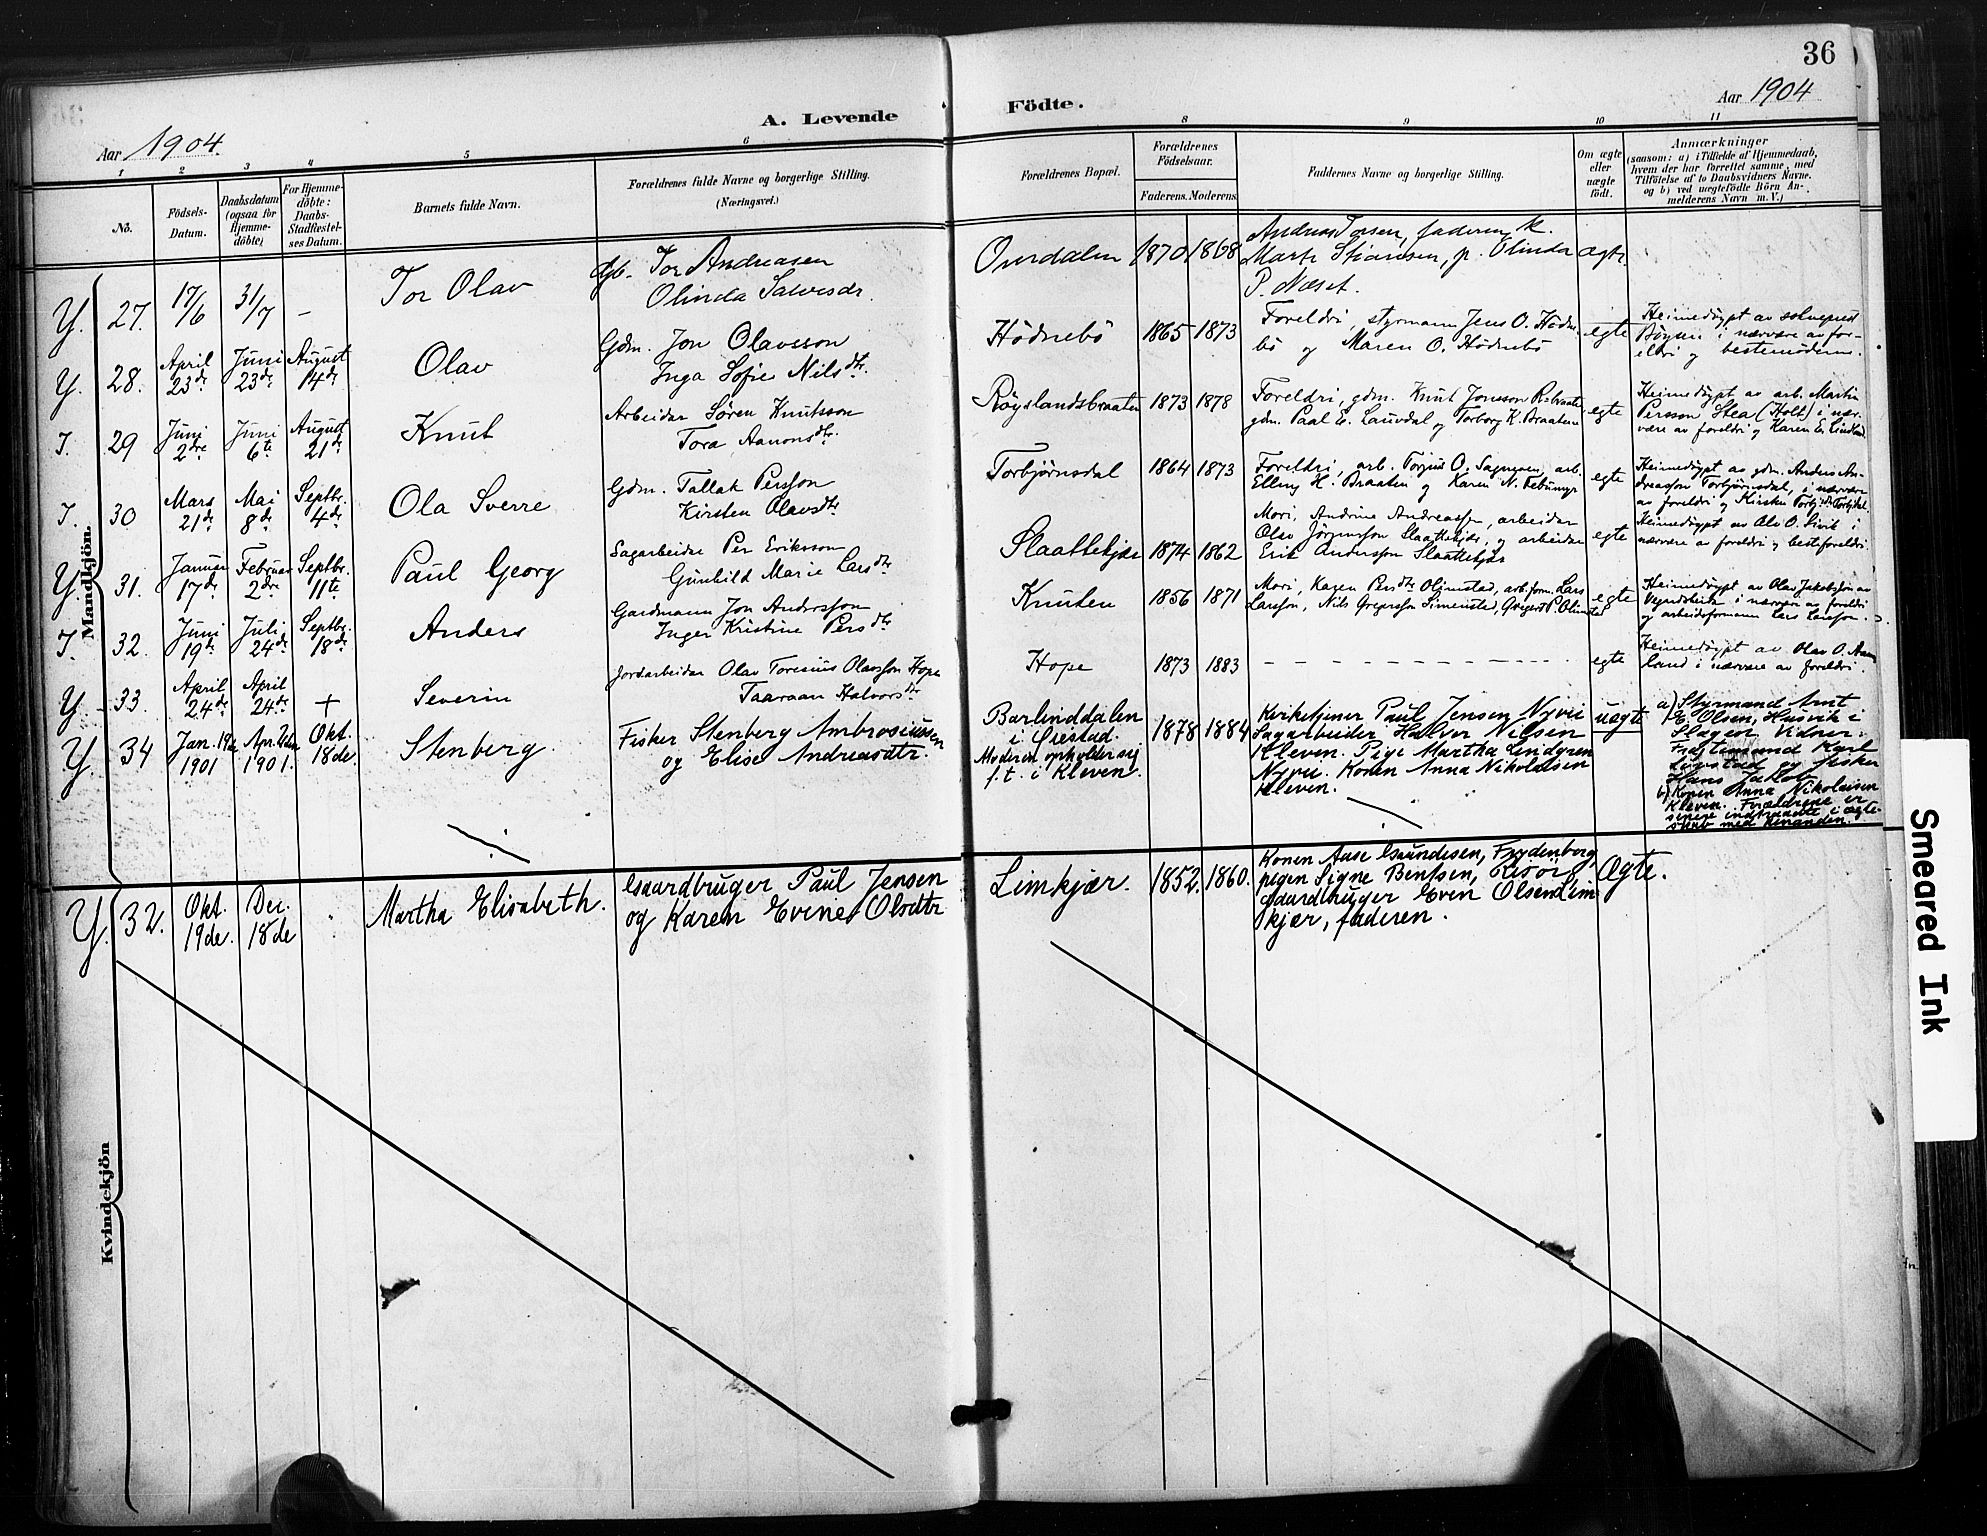 36
Aar 1904.
A. Levende
Födte.
Aar 1904
1 2 3 4 5 6
8 9 10 11
No.
Födsels-
Datum.
Daabsdatum
(ogsaa för
Hjemme-
döbte)
For Hjemme-
döbte:
Daabs-
Stadfæstel-
ses Datum.
Barnets fulde Navn.
Forældrenes fulde Navne og borgerlige Stilling.
(Næringsvei.)
Forældrenes Bopæl.
Forældrenes
Födselsaar.
Faderens. Moderens.
Faddernes Navne og borgerlige Stilling.
Om ægte
eller
uægte
födt.
Anmærkninger
(saasom: a) i Tilfælde af Hjemmedaab,
hvem der har forrettet samme, med
Tilföielse af to Daabsvidners Navne.
og b) ved uægtefödte Börn An-
melderens Navn m. V.)
Mandkjön.
Y. 27. 17/6 31/7 – Tor Olav
Gb. Tor Andreasen
Olinda Salvesdr.
1870 1868
Andreas Torsen, faderen, k.
Marte Stiansen, p. Olinda
P. Næset.
ægte
Y. 28. April 23de Juni 23de August 14de Olav
Gdm. Jon Olavsson
Inga Sofie Nilsdtr.
Hödnebö 1865 1873
Foreldri, styrmann Jens O. Hödne-
bö og Maren O. Hödnebö
egte
Heimedöypt av sokneprest
i nærvære av for-
eldri og bestemoderen.
I. 29 Juni 2dre Juni 6te August 21de Knut
Arbeider Sören Knutsson
Tora Aanonsdtr.
Röyslandsbraaten 1873 1878
Foreldri, gdm. Knut Jonsson R.braate
gdm. Paal E. Lauvdal og Torborg K. Braaten
egte
Heimedöypt av arb. Martin
Persson Stea (Holt) i nær-
være av foreldri og Karen E. Lindland
I. 30 Mars 21de Mai 8de Septbr. 4de Ola Sverre
Gdm. Tallak Persson
Kirsten Olavsdtr
Torbjørnsdal 1864 1873
Foreldri, arb. Torjus O. arb.
Elling H. Braaten og Karen N.
egte
Heimedöypt av gdm. Anders An-
dreasson Torbjørnsdal, i nærvære
av foreldri og Kirsten
Y 31. Januar 17de Februar 2dre Septbr. 11te Paul Georg
Sagarbeider Per Eriksson
Gunhild Marie Larsdtr
Slaattekjær 1874 1862
Mori, Andrine Andreassen, arbeider
Olav Jörgensson Slaattekjær, og arbeider
Erik Andersson Slaattekjær
egte
Heimedöypt av Olav O. i
nærvære av foreldri og besteforeldri.
I. 32. Juni 19de Juli 24de Septbr. 18de Anders
Gardmann Jon Andersson
Inger Kristine Persdtr
Knuten 1856 1871
Mori, Karen Persdtr Olimstad, arb.form. Lars
Larsson, Nils Gregersson Simenstad, Gregert P. Olimstad
egte
Heimedöypt av Olav Jakobsson av
i nærvære av foreldri
og arbeidsformann Lars Larsson.
Y 33. April 24de April 24de + Severin
Jordarbeider Olav Toresius Olavsson Hope
Taaraan Halvorsdtr
Hope 1873 1883
– – – – – – – – – – –
egte
Heimedöypt av Olav O.
i nærvære av foreldri.
Y. 34 Jan. 19de 1901 Apr. 1901. Okt. 18de. Stenberg.
Fisker Stenberg Ambrosiussen
og Elise Andreasdtr.
Barlinddalen
i Örestad.
Moderen opholder sig
f.t. i Kleven.
1878 1884
Kirketjener Paul Jensen Nyvei
Sagarbeider Halvor Nilsen
Kleven. Pige Martha Lindgren
Nyvei. Konen Anna Nikolaisen
Kleven.
uægte
a) Styrmand Arnt
E. Olsen, Husvik i
Slagen Vidner:
Karl
og fisker
Hans Jakob
b) Konen Anna Nikolaisen
Kleven. Forældrene er
senere indtraadte i ægte-
skab med hinanden.
Kvindekjön
Y. 32. Okt. 19de. Dec. 18de Martha Elisabeth.
Gaardbruger Paul Jensen
og Karen Evine Olsdtr
Limkjær. 1852. 1860.
Konen Aase Gaundesen, Frydenborg,
pigen Signe Bentsen, Risör,
gaardbruger Even Olsen Lim
kjær, faderen.
Ægte.
Smeared Ink